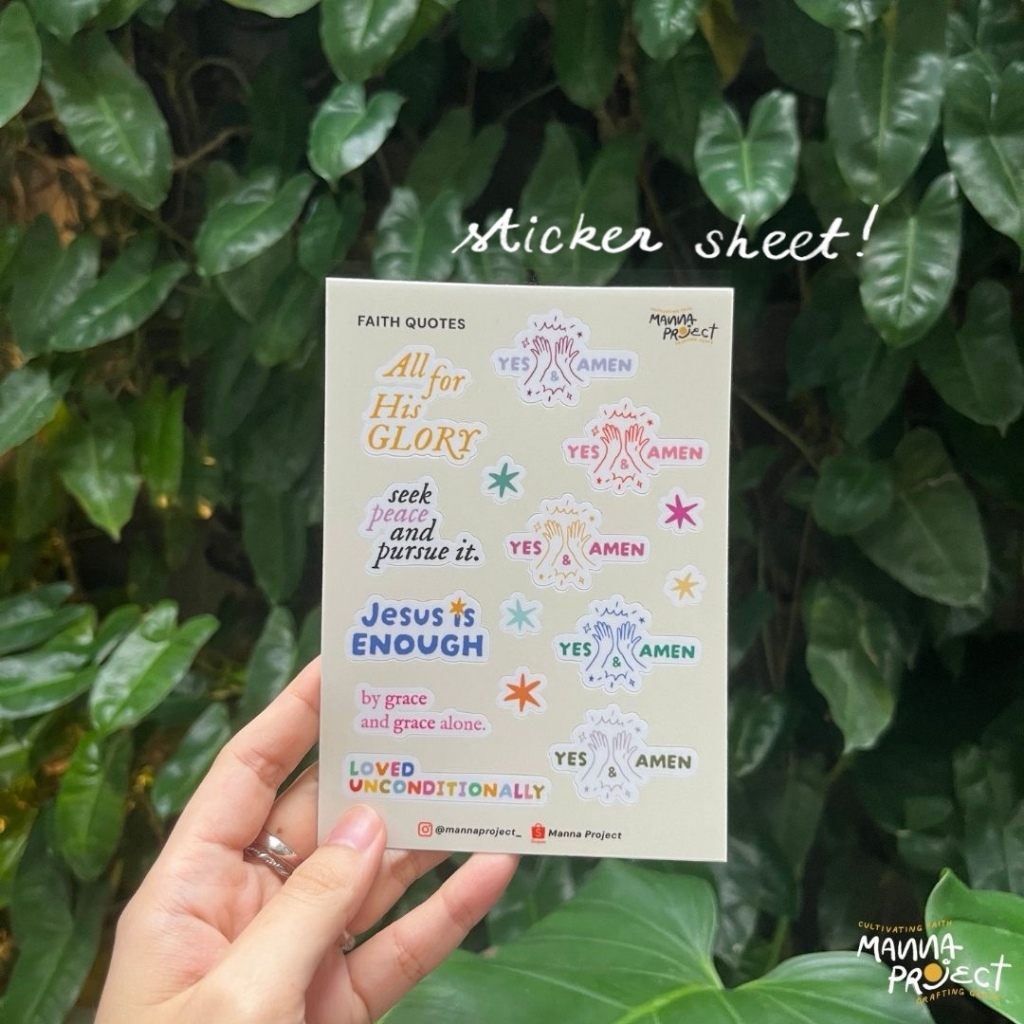 sticker sheet!
FAITH QUOTES
MANNA
PROJECT
All for
His
GLORY
YES & AMEN
YES & AMEN
seek
peace
and
pursue it.
YES & AMEN
Jesus is
ENOUGH
YES & AMEN
by grace
and grace alone.
YES & AMEN
LOVED
UNCONDITIONALLY
@mannaproject_ Manna Project
CULTIVATING FAITH
MANNA
PROJECT